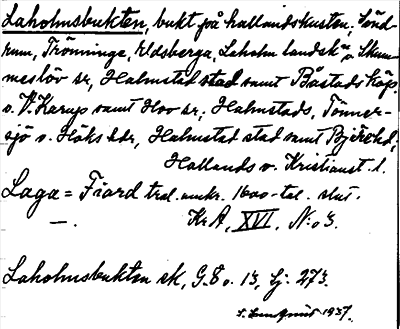 Laholmsbukten, bukt på hallandskusten, Sönd-
rum, Trönninge, Eldsberga, Laholm landsk. o. Skum-
meslöv sr, Halmstad stad samt Båstads köp.
o. V. Karup samt Hov sr; Halmstads, Tönner-
sjö o. Höks hdr, Halmstad stad samt Bjäre hd,
Hallands o. Kristianst. l.
Laga = Fiard trol. omkr. 1600-tal. slut.
—. KrA, XVI, N:o 3.
Laholmsbukten sk, G.Ö. 13, Lj. 273.
1937.